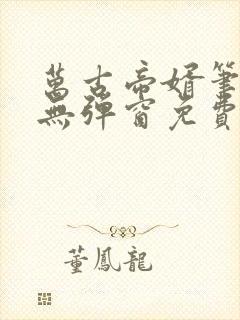 萬古帝婿筆
無彈窗免費
董鳳龍